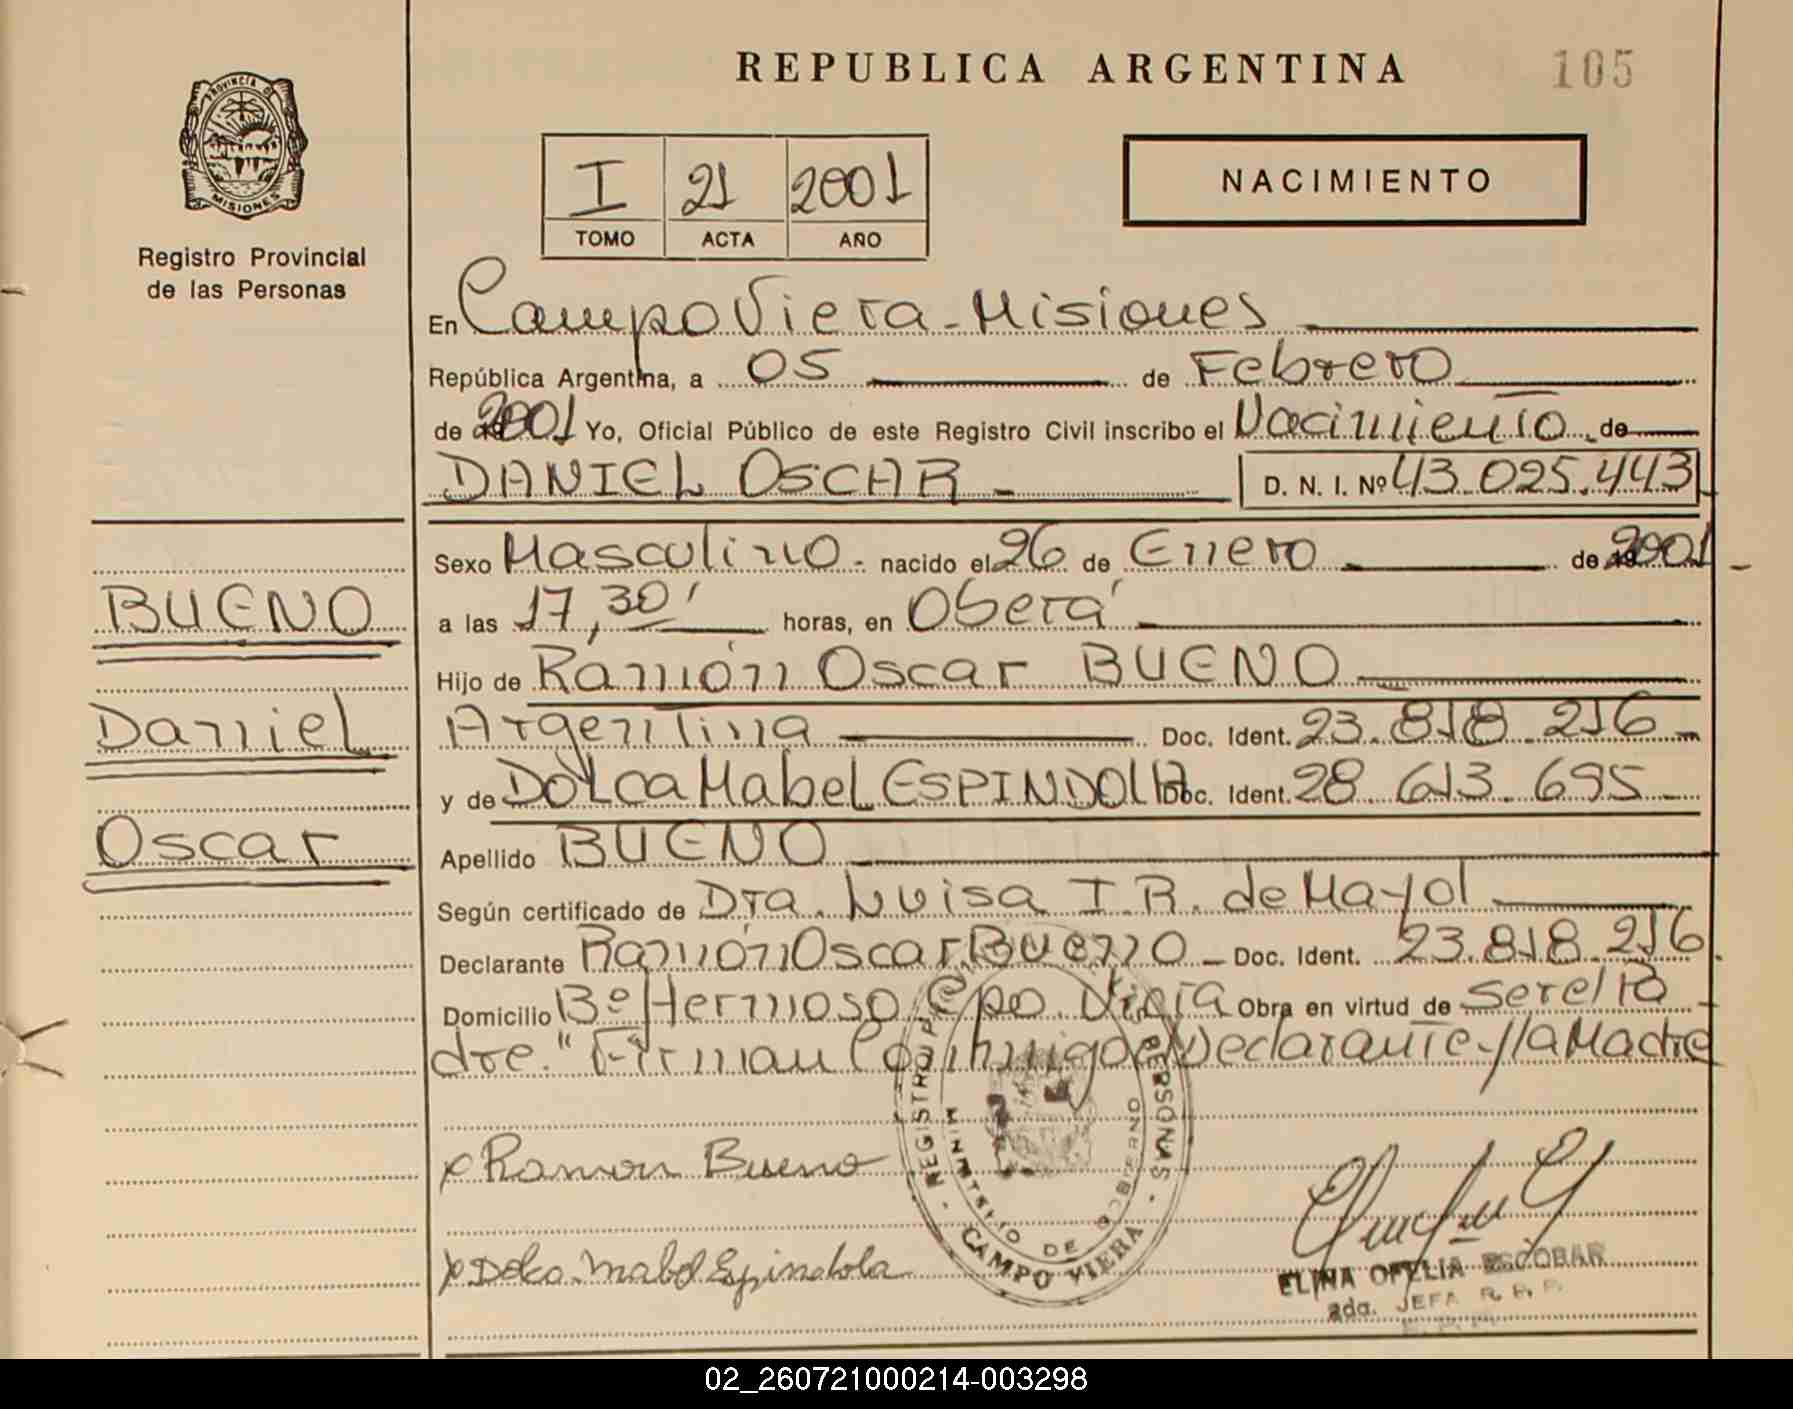 REPUBLICA ARGENTINA
105
PROVINCIA DE
MISIONES
Registro Provincial
de las Personas
I 21 2001
TOMO ACTA AÑO
NACIMIENTO
En Campo Viera - Misiones
República Argentina, a 05 de Febrero
de 2001 Yo, Oficial Público de este Registro Civil inscribo el Nacimiento de
DANIEL OSCAR - D. N. I. Nº 43.025.443
Sexo Masculino - nacido el 26 de Enero de 2001 -
a las 17,30' horas, en Oberá
Hijo de Ramón Oscar BUENO
Argentina Doc. Ident. 23.818.216 -
y de Dolca Mabel ESPINDOLA Doc. Ident. 28.613.695 -
Apellido BUENO
Según certificado de Dra. Luisa I. R. de Mayol
Declarante Ramón Oscar Bueno - Doc. Ident. 23.818.216.
Domicilio Bº Hermoso Cpo. Viera Obra en virtud de ser el Pa
dre." Firman Conmigo el Declarante y la Madre
BUENO
Daniel
Oscar
x Ramon Bueno
x Dolca Mabel Espindola
REGISTRO PERSONAS
MINISTERIO DE GOBIERNO
CAMPO VIERA
ELINA OFELIA ESCOBAR
2da. JEFA R. P. P.
02_260721000214-003298